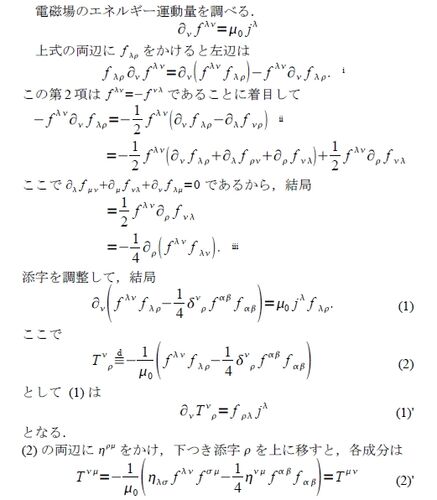 電磁場のエネルギー運動量を調べる.
∂_ν f^{λν}=μ_0 j^λ
上式の両辺に f_{λρ} をかけると左辺は
f_{λρ} ∂_ν f^{λν}=∂_ν(f^{λν} f_{λρ})−f^{λν} ∂_ν f_{λρ}. i
この第2項は f^{λν}=−f^{νλ} であることに着目して
−f^{λν} ∂_ν f_{λρ}=−1/2 f^{λν}(∂_ν f_{λρ}−∂_λ f_{νρ}) ii
=−1/2 f^{λν}(∂_ν f_{λρ}+∂_λ f_{ρν}+∂_ρ f_{νλ})+1/2 f^{λν} ∂_ρ f_{νλ}
ここで ∂_λ f_{μν}+∂_μ f_{νλ}+∂_ν f_{λμ}=0 であるから，結局
=1/2 f^{λν} ∂_ρ f_{νλ}
=−1/4 ∂_ρ(f^{λν} f_{λν}). iii
添字を調整して，結局
∂_ν(f^{λν} f_{λρ}−1/4 δ^ν_ρ f^{αβ} f_{αβ})=μ_0 j^λ f_{λρ}. (1)
ここで
T^ν_ρ ≝ −1/μ_0 (f^{λν} f_{λρ}−1/4 δ^ν_ρ f^{αβ} f_{αβ}) (2)
として (1) は
∂_ν T^ν_ρ=f_{ρλ} j^λ (1)'
となる.
(2) の両辺に η^{ρμ} をかけ，下つき添字 ρ を上に移すと，各成分は
T^{νμ}=−1/μ_0 (η_{λσ} f^{λν} f^{σμ}−1/4 η^{νμ} f^{αβ} f_{αβ})=T^{μν} (2)'